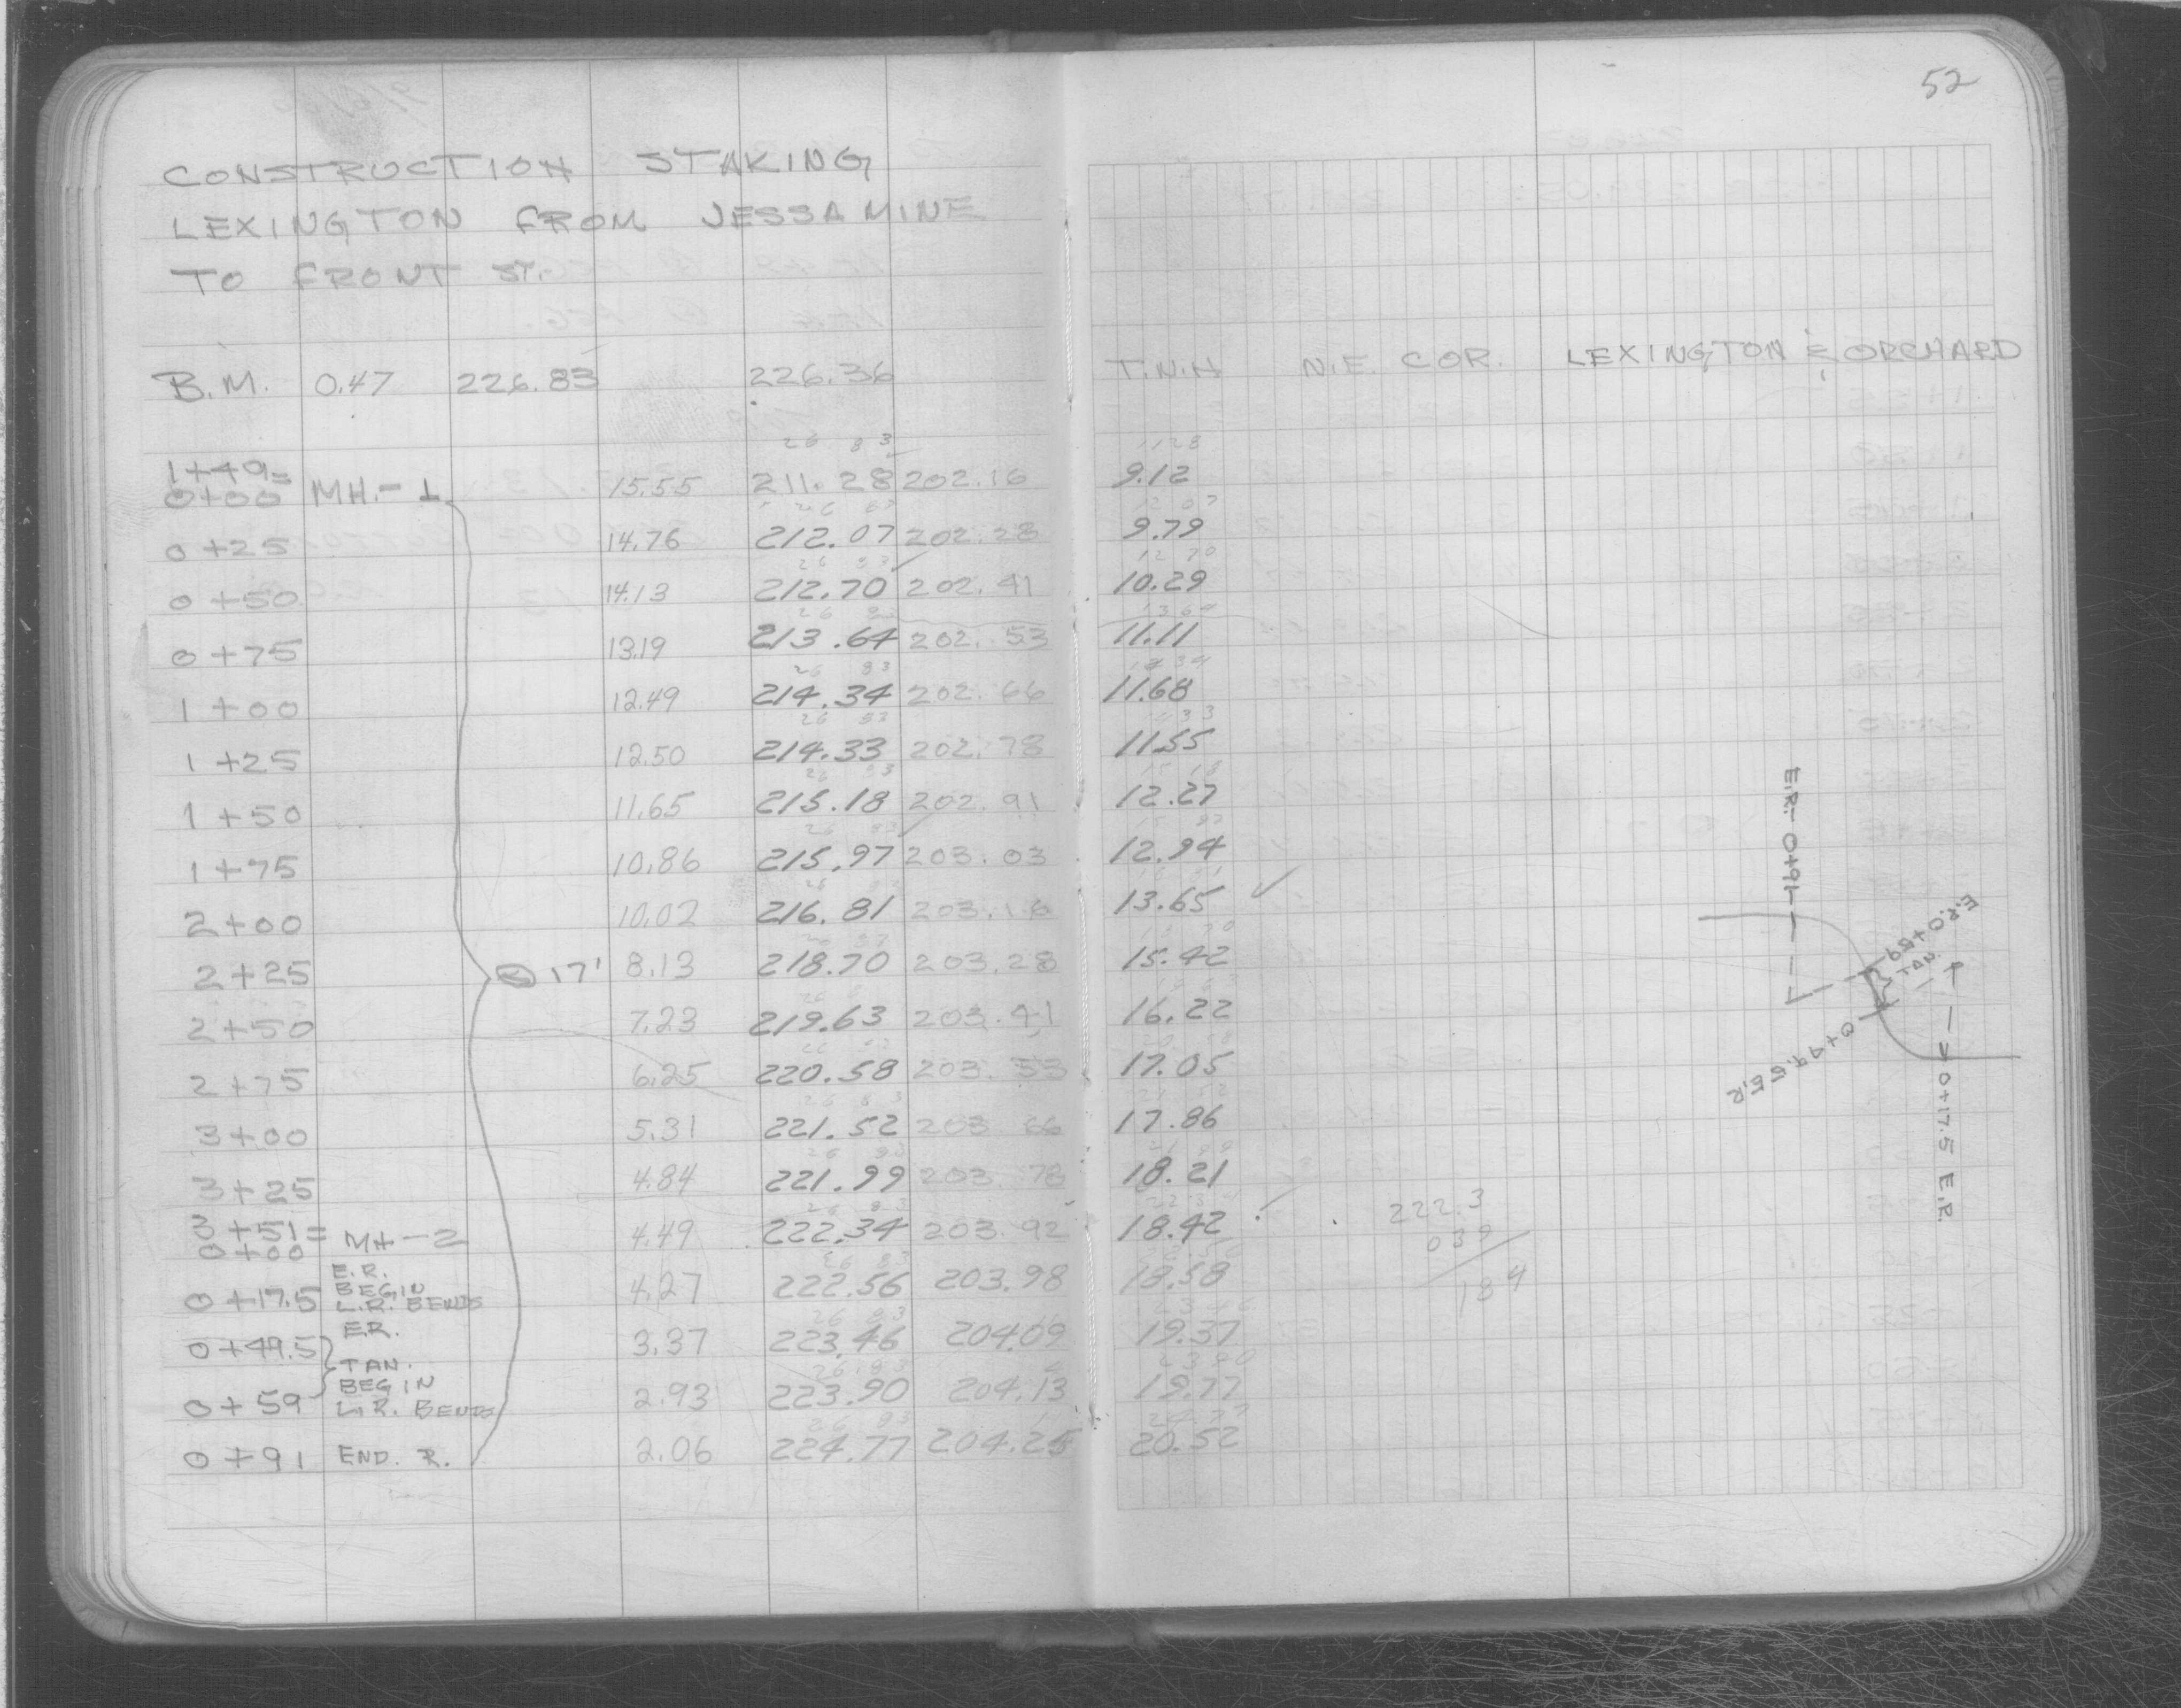 52
CONSTRUCTION STAKING
LEXINGTON FROM JESSAMINE
TO FRONT ST.
B.M. 0.47 226.83 226.36 T.N.H N.E. COR. LEXINGTON & ORCHARD
26 83 11 28
1+49=
0+00 MH.-1 15.55 211.28 202.16 9.12
26 83 12 07
0+25 14.76 212.07 202.28 9.79
26 83 12 70
0+50 14.13 212.70 202.41 10.29
26 83 13 64
0+75 13.19 213.64 202.53 11.11
26 83 14 34
1+00 12.49 214.34 202.66 11.68
26 83 14 33
1+25 12.50 214.33 202.78 11.55
26 83 15 18
1+50 11.65 215.18 202.91 12.27
26 83
1+75 10.86 215.97 203.03 12.94
26
2+00 10.02 216.81 203.16 13.65
2+25 @ 17' 8.13 218.70 203.28 15.42
2+50 7.23 219.63 203.41 16.22
2+75 6.25 220.58 203.53 17.05
26 83
3+00 5.31 221.52 203.66 17.86
26 83
3+25 4.84 221.99 203.78 18.21
26 83
3+51=
0+00 MH-2 4.49 222.34 203.92 18.42
26 83
0+17.5 E.R. BEGIN L.R. BENDS 4.27 222.56 203.98 18.58
26 83
0+49.5 E.R. 3.37 223.46 204.09 19.37
TAN.
26.83
0+59 BEGIN L.R. BENDS 2.93 223.90 204.13 19.77
26 83
0+91 END. R. 2.06 224.77 204.25 20.52
222.3
039
184
E.R. 0+91
E.R. 0+59
TAN.
0+49.5 E.R
0+17.5 E.R.